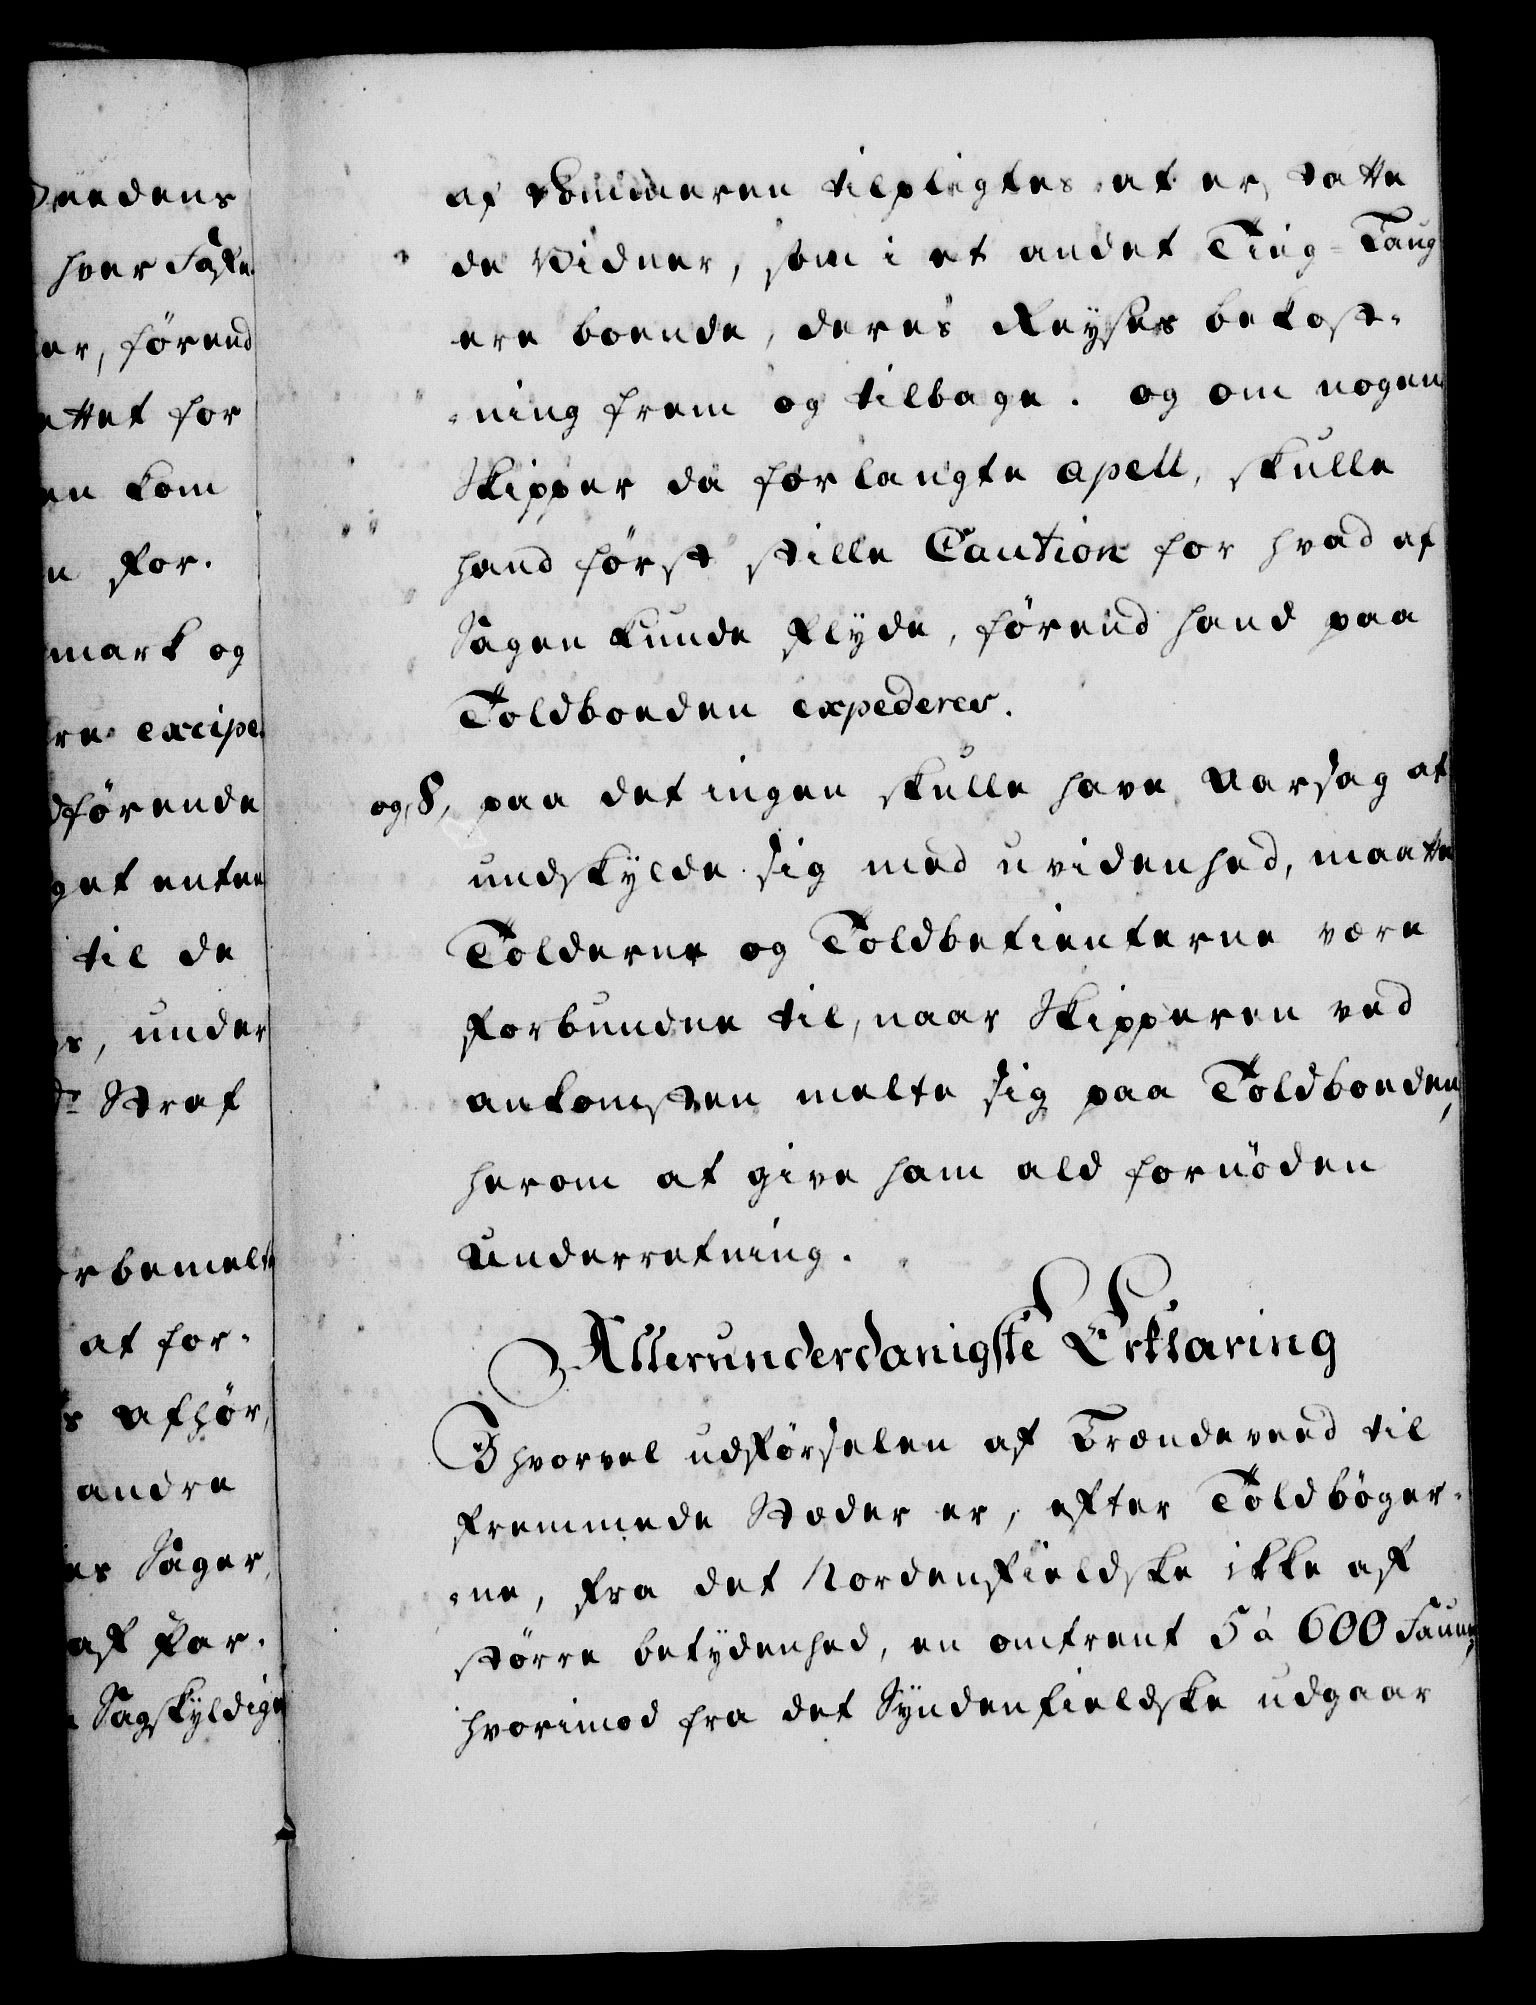 veedens
hver Fasta
er, förend
ettet for
en kom
n For-
mark og
re excipe
dførende
get enten
til de
s, under
Straf
rbemelte
at for-
s Afhør,
andre
es Sager,
af For-
Sagskyldige
af Dommeren tilpligtes at erstatte
de Vidner, som i et andet Ting-Laug
ere boende, deres Reyses bekost-
-ning frem og tilbage. og om nogen
Skipper da forlangte apell, skulle
hand først stille Caution for hvad af
Sagen kunde flyde, førend hand paa
Toldboeden expederes.
og 8, paa det ingen skulle have Aarsag at
undskylde sig med uvidenhed, maatte
Tolderne og Toldbetienterne være
forbundne til, naar Skipperen ved
ankomsten melte sig paa Toldboeden,
herom at give ham ald fornöden
Underretning.
Allerunderdanigste Erklæring
Ihvorvel udførselen af Brændeveed til
fremmede Stæder er, efter Toldbøger-
-ne, fra det Nordenfieldske ikke af
større betydenhed, en omtrent 5 à 600 Faune,
hvorimod fra det Syndenfieldske udgaar